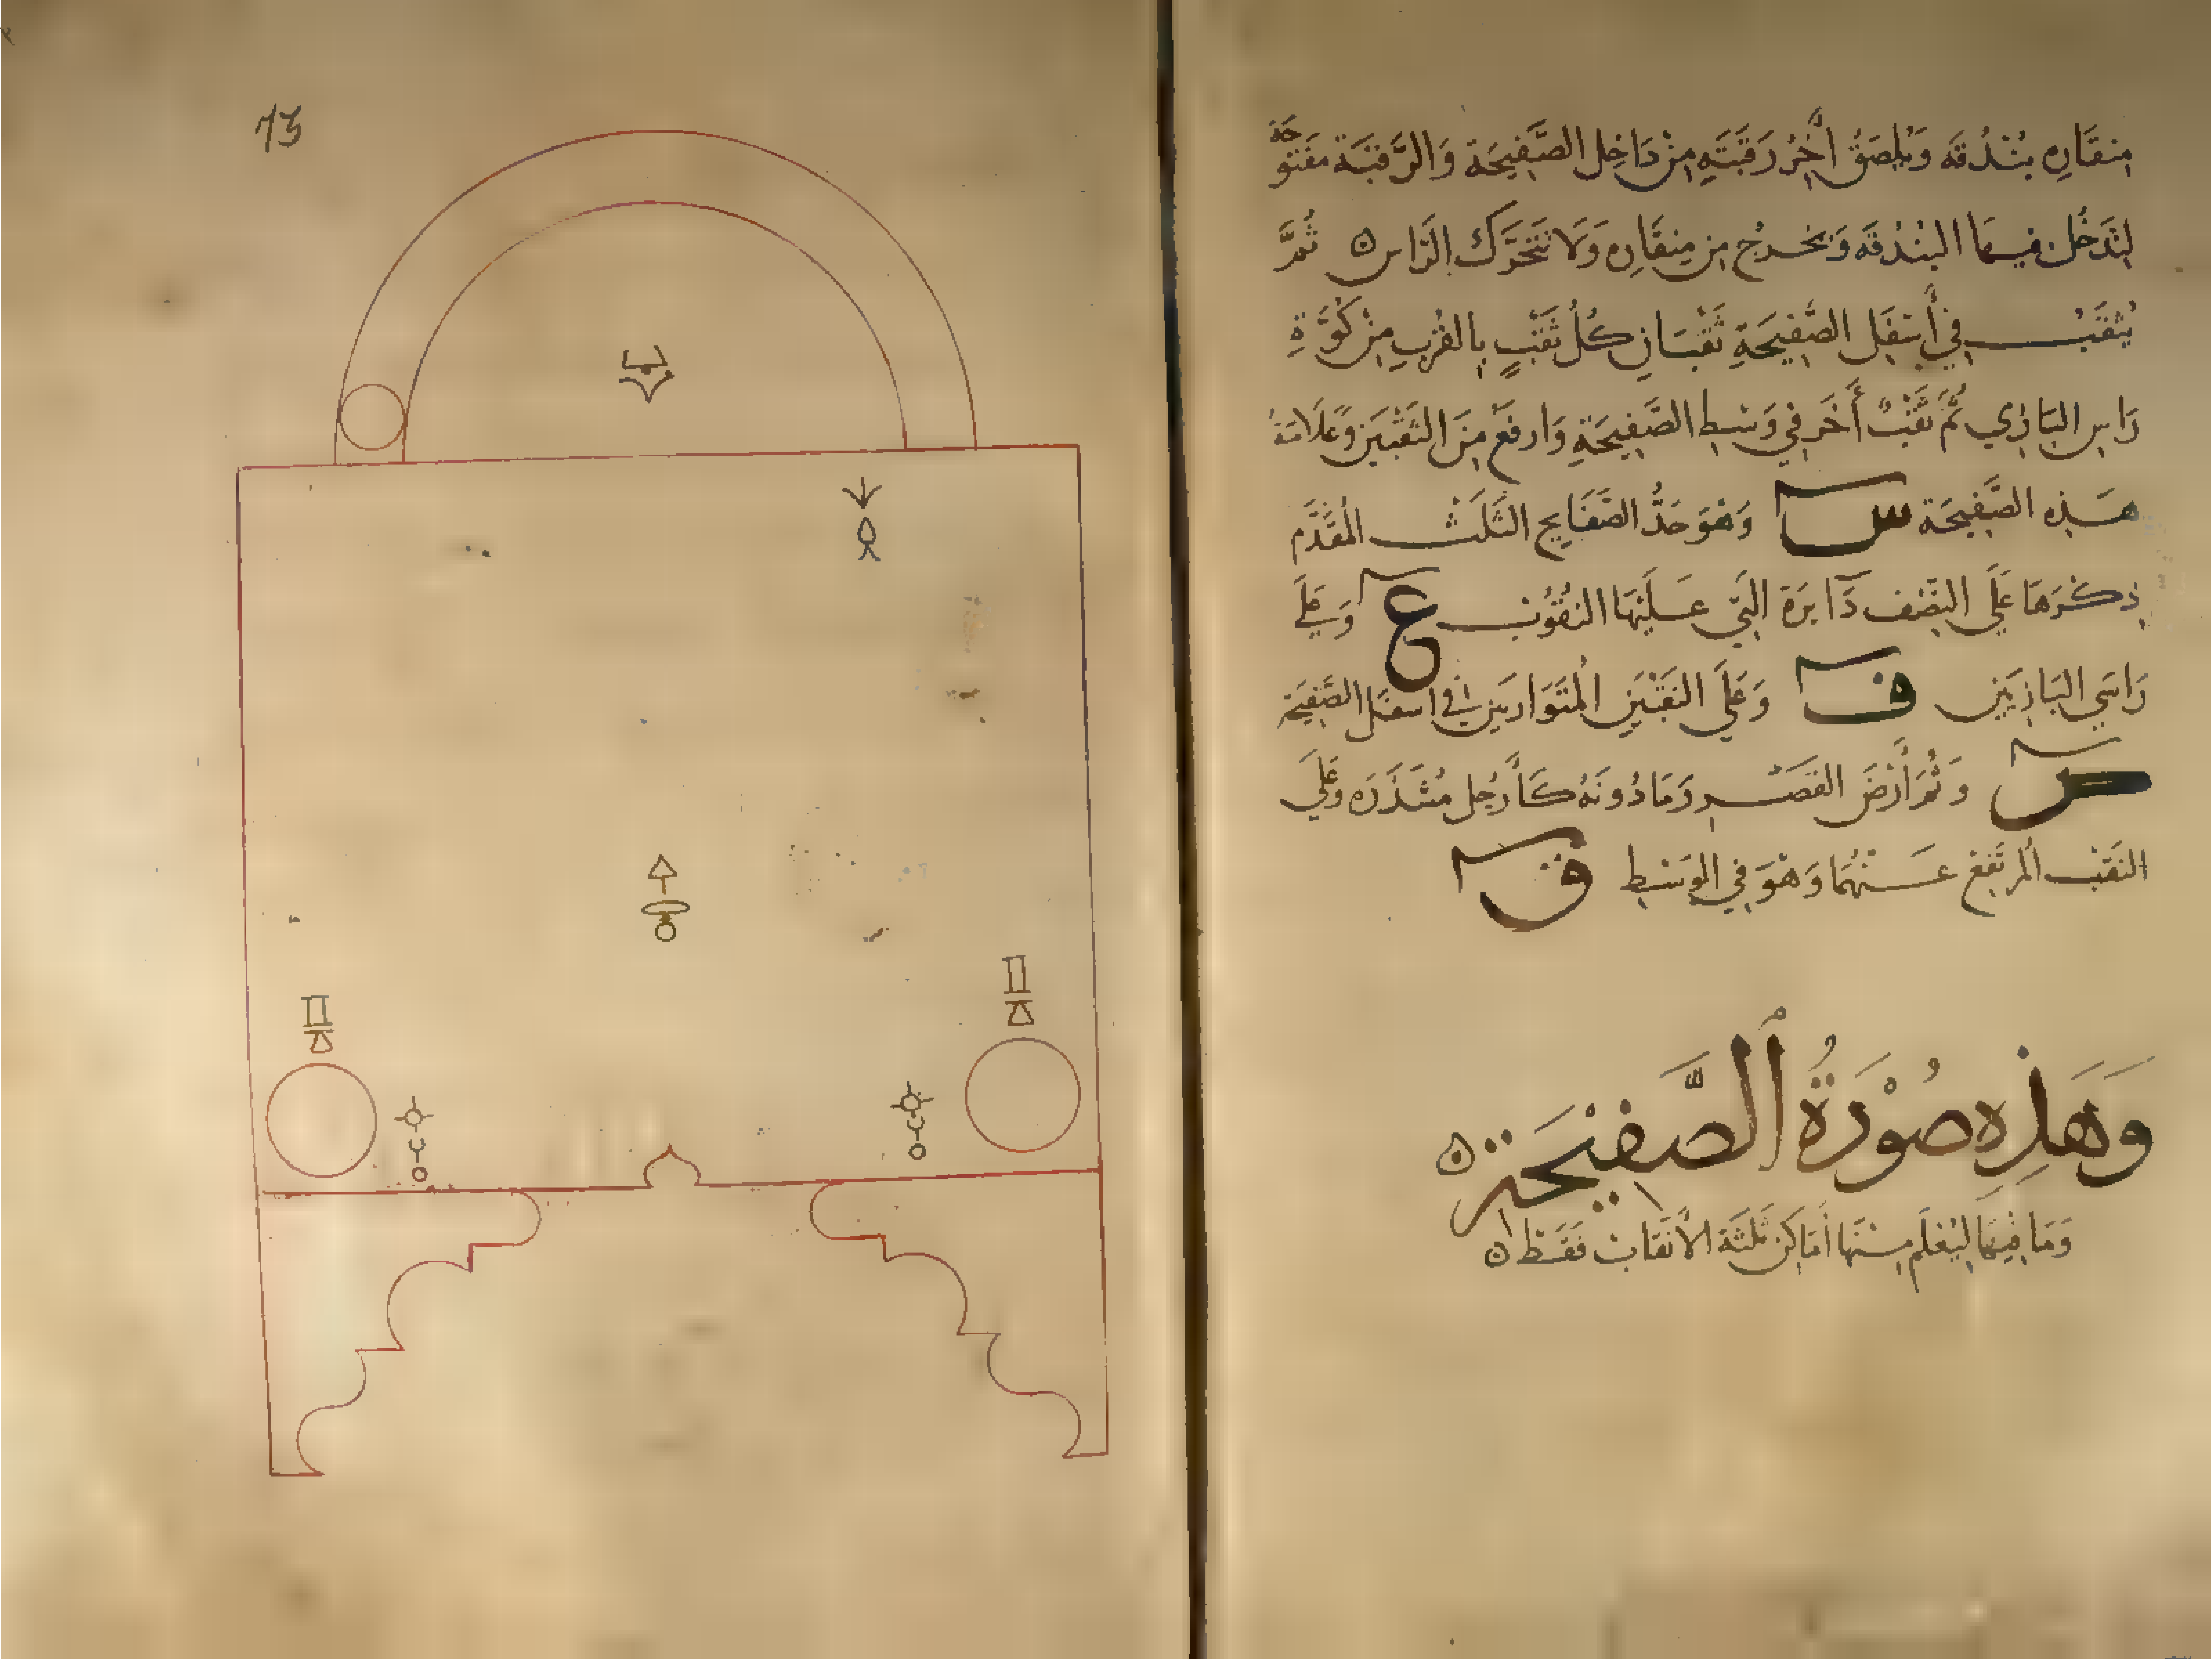 منقاره بندقه ويلصق آخر رقبته من داخل الصفيحة والرقبة مفتوحة
لتدخل فيها البندقه وتخرج من منقاره ولا تتحرك الراس ثم
يثقب في أسفل الصفيحة ثقبان كل ثقب بالقرب من كوة
راس البازي ثم ثقب أخر في وسط الصفيحة وارفع من الثقبين وعلامة
هذه الصفيحة س وهو حد الصفايح الثلث المقدم
ذكرها على النصف دآيرة التي عليها الثقوب ع وعلى
راسي البازيين ف وعلى الثقبين المتوازيين في اسفل الصفيحة
ص وثم أرض القصر وما دونه كأرجل منشذره وعلى
الثقب المرتفع عنهما وهو في الوسط ق
وهذه صورة الصفيحة
وما فيها ليعلم منها أماكن ثلثة الأثقاب فقط
73